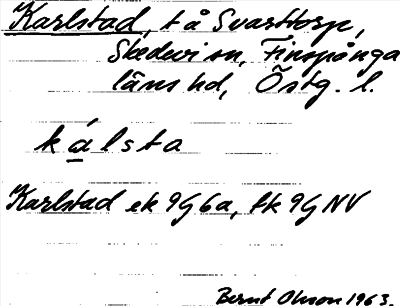 Karlstad, t å Svarttorp,
Skedevi sn, Finspånga
läns hd, Östg. l.
kálsta
Karlstad ek 9G6a, fk 9G NV
Bernt Olsson 1963.